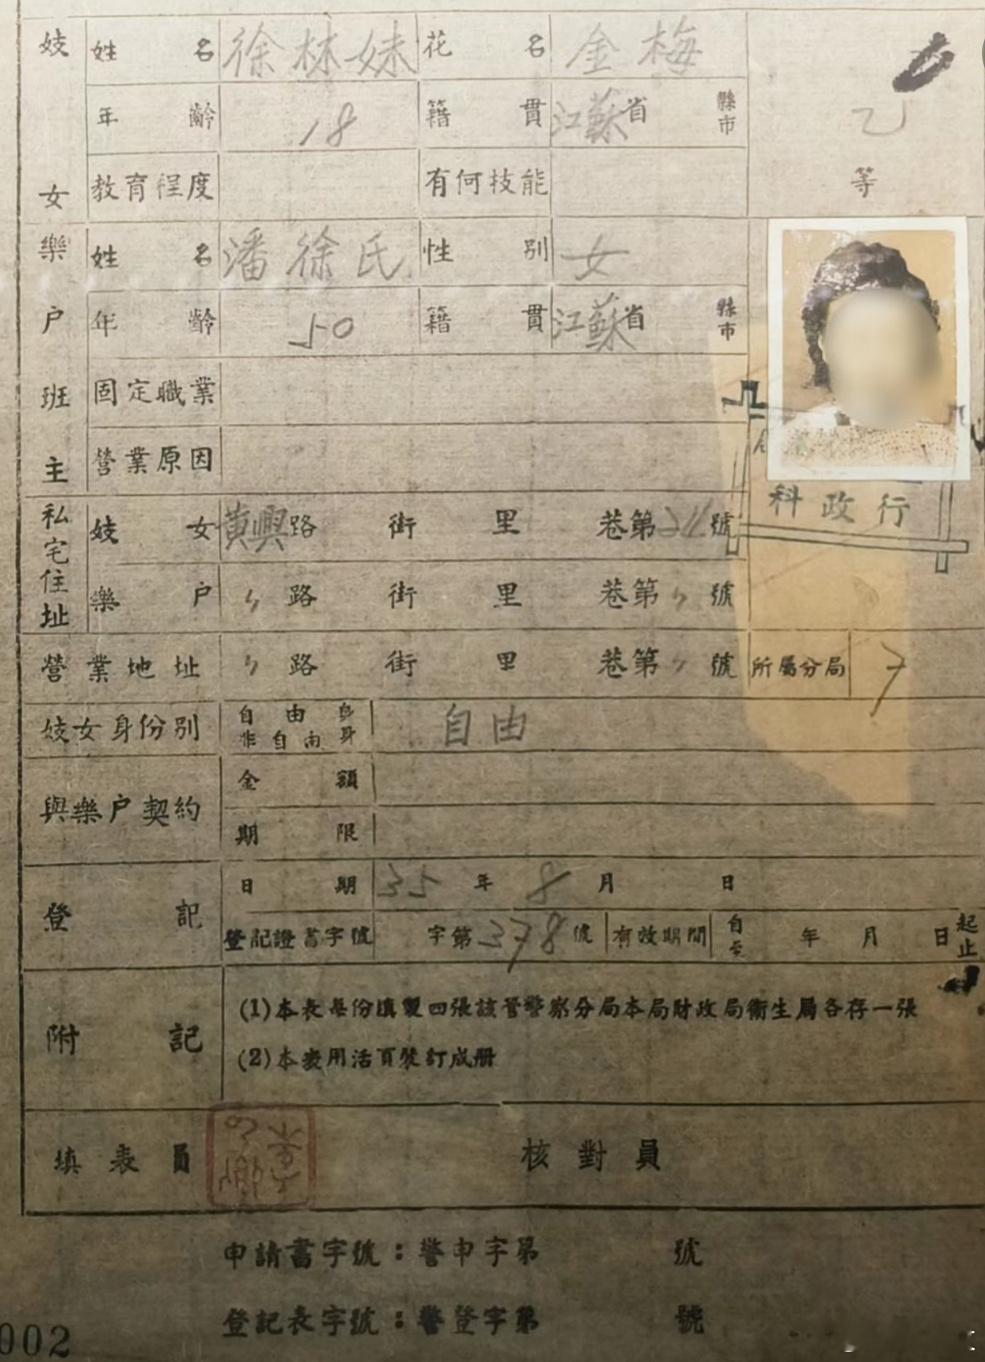 妓女 姓名 徐林妹 花名 金梅
年齡 18 籍貫 江蘇省 縣市 乙
教育程度 有何技能 等
樂戶班主 姓名 潘徐氏 性別 女
年齡 50 籍貫 江蘇省 縣市
固定職業
營業原因
科政行
私宅住址 妓女 黃興路 街 里 巷第 號
樂戶 〃路 街 里 巷第〃號
營業地址 〃路 街 里 巷第〃號 所屬分局 7
妓女身份別 自由身 非自由身 自由
與樂戶契約 金額
期限
登記 日期 35年8月 日
登記證書字號 字第378號 有效期間 自至 年 月 日 起止
附記 (1)本表每份填製四張該管警察分局本局財政局衛生局各存一張
(2)本表用活頁裝訂成册
填表員 核對員
申請書字號：警申字第 號
登記表字號：警登字第 號
002